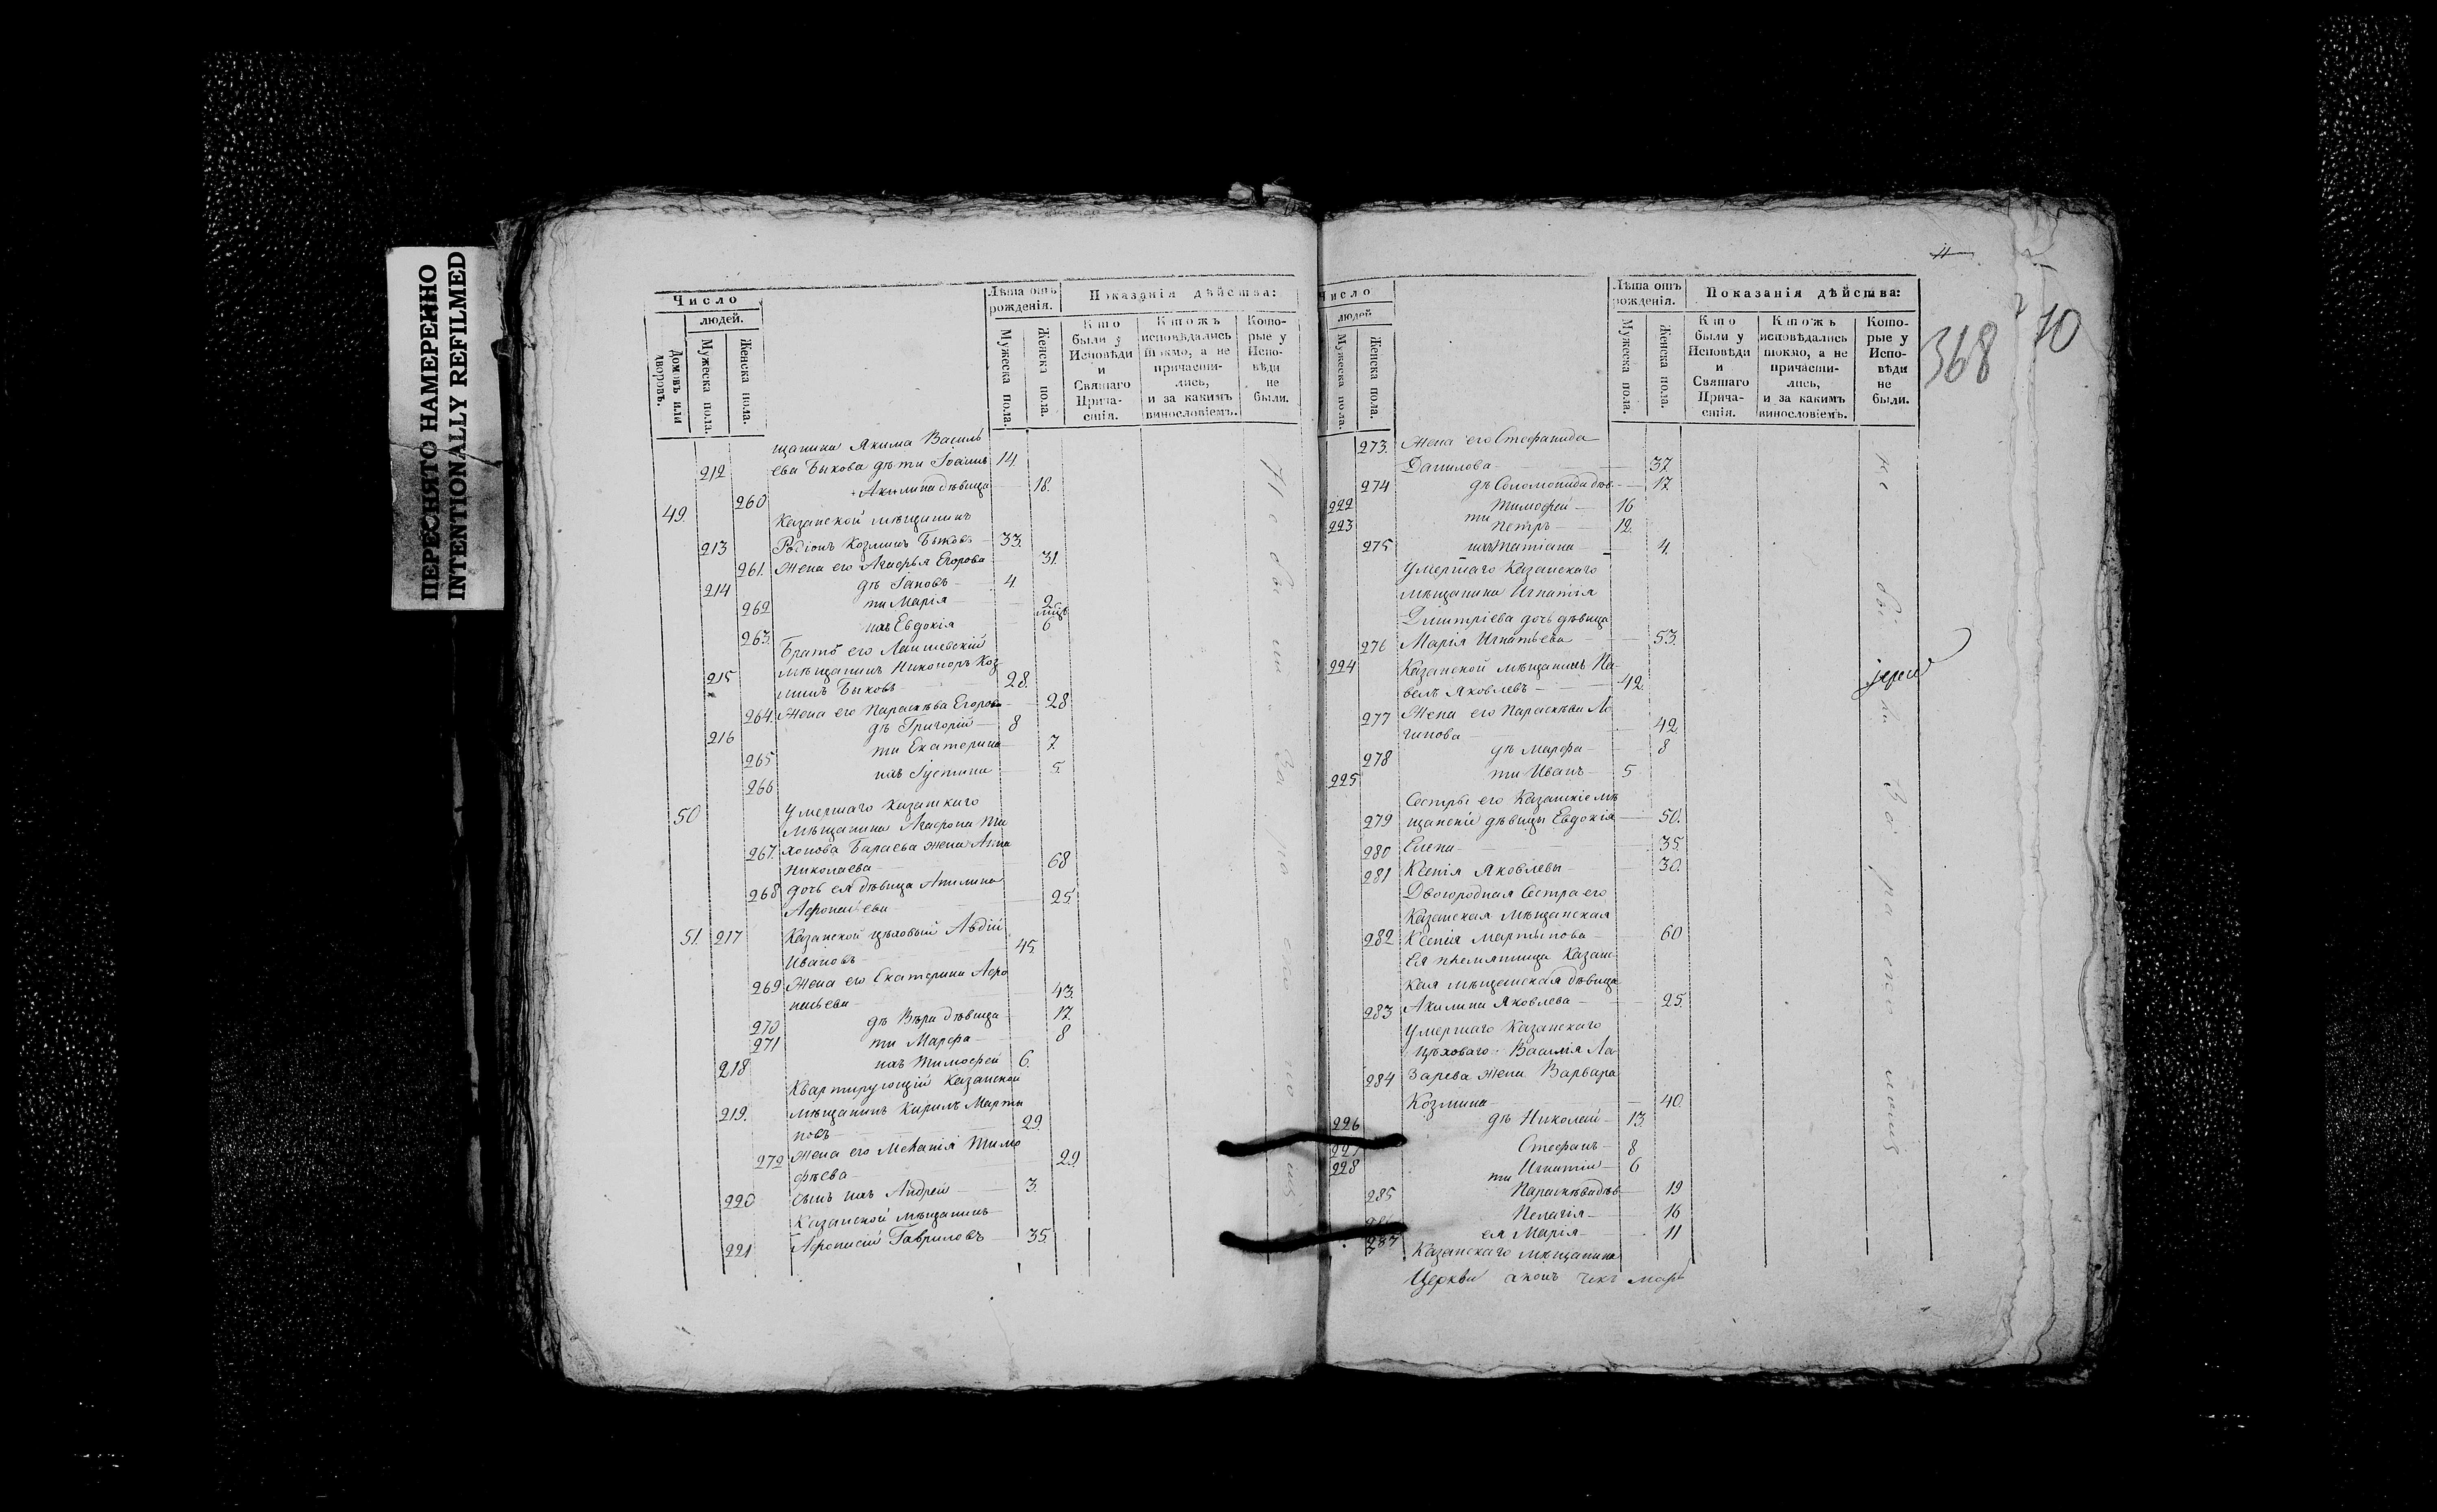 ПЕРЕСНЯТО НАМЕРЕННО
INTENTIONALLY REFILMED
Число
людей.
Домовъ или дворовъ.
Мужеска пола.
Женска пола.
Лѣта отъ рожденія.
Мужеска пола.
Женска пола.
Показанія дѣйства:
Кто были у Исповѣди и Святаго Прича-стія.
Ктожъ исповѣдались токмо, а не причасти-лись, и за какимъ винословіемъ.
Кото-рые у Испо-вѣди не были.
щанина Якима Василь
212 ева Быкова дѣти Іоаннъ 14.
260 Акилина дѣвица 18.
49. Казанской мѣщанинъ
213 Родіонъ Козминъ Быковъ 33.
261. Жена его Агафья Егорова 31.
214 дѣ Іаковъ 4.
262 ти Марія 2
263. ихъ Евдокія мцъ 6
Братъ его Лаишевскій
215 мѣщанинъ Никоноръ Коз
минъ Быковъ 28.
264. Жена его Параскѣва Егорова 28
216 дѣ Григорій 8
265 ти Екатерина 7.
266 ихъ Іустина 5.
50 Умершаго Казанскаго
мѣщанина Агафона Ти
267. хонова Бараева жена Анна
Николаева 68
268 дочь ея дѣвица Акилина
Афонасьева 25.
51. 217 Казанской цѣховый Авдій
Ивановъ 45.
269 Жена его Екатерина Афо
насьева 43.
270 дѣ Вѣра дѣвица 17.
271 ти Марфа 8
218 ихъ Тимофей 6.
Квартирующій Казанской
219. мѣщанинъ Кирилъ Марты
новъ 29.
272 Жена его Меланія Тимо
фѣева 29.
220 сынъ ихъ Андрей 3.
Казанской мѣщанинъ
221 Афонасій Гавриловъ 35.
Не были за по
Число
людей
Мужеска пола.
Женска пола.
Лѣта отъ рожденія.
Мужеска пола.
Женска пола.
Показанія дѣйства:
Кто были у Исповѣди и Святаго Прича-стія.
Ктожъ исповѣдались токмо, а не причасти-лись, и за какимъ винословіемъ.
Кото-рые у Испо-вѣди не были.
11
368
10
273. Жена его Стефанида
Данилова 37.
274 дѣ Соломонида дѣв. 17.
222 Тимофей 16
223 ти Петръ 12.
275 ихъ Татіана 4.
Умершаго Казанскаго
мѣщанина Игнатія
Димитріева дочь дѣвица
276 Марія Игнатьева 53.
224 Казанской мѣщанинъ Па-
велъ Яковлевъ 42.
277 Жена его Параскѣва Ло
гинова 42.
278 дѣ Марфа 8
225 ти Иванъ 5
Сестры его Казанскіе мѣ
279 щанскіе дѣвицы Евдокія 50.
280 Елена 35.
281 Ксенія Яковлевы 30.
Двоюродная Сестра его
Казанская мѣщанская
282 Ксенія Мартынова 60
Ея племянница Казанс
кая мѣщанская дѣвица
283 Акилина Яковлева 25.
Умершаго Казанскаго
цѣховаго Василія Ла
284 зарева жена Варвара
Козмина 40.
226 дѣ Николай 13.
227 Стефанъ 8
228 ти Игнатій 6
285 Параскѣва дѣв 19
286 Пелагія 16
287 ея Марія 11
Казанскаго мѣщанина
не были за
іерей
Церкви